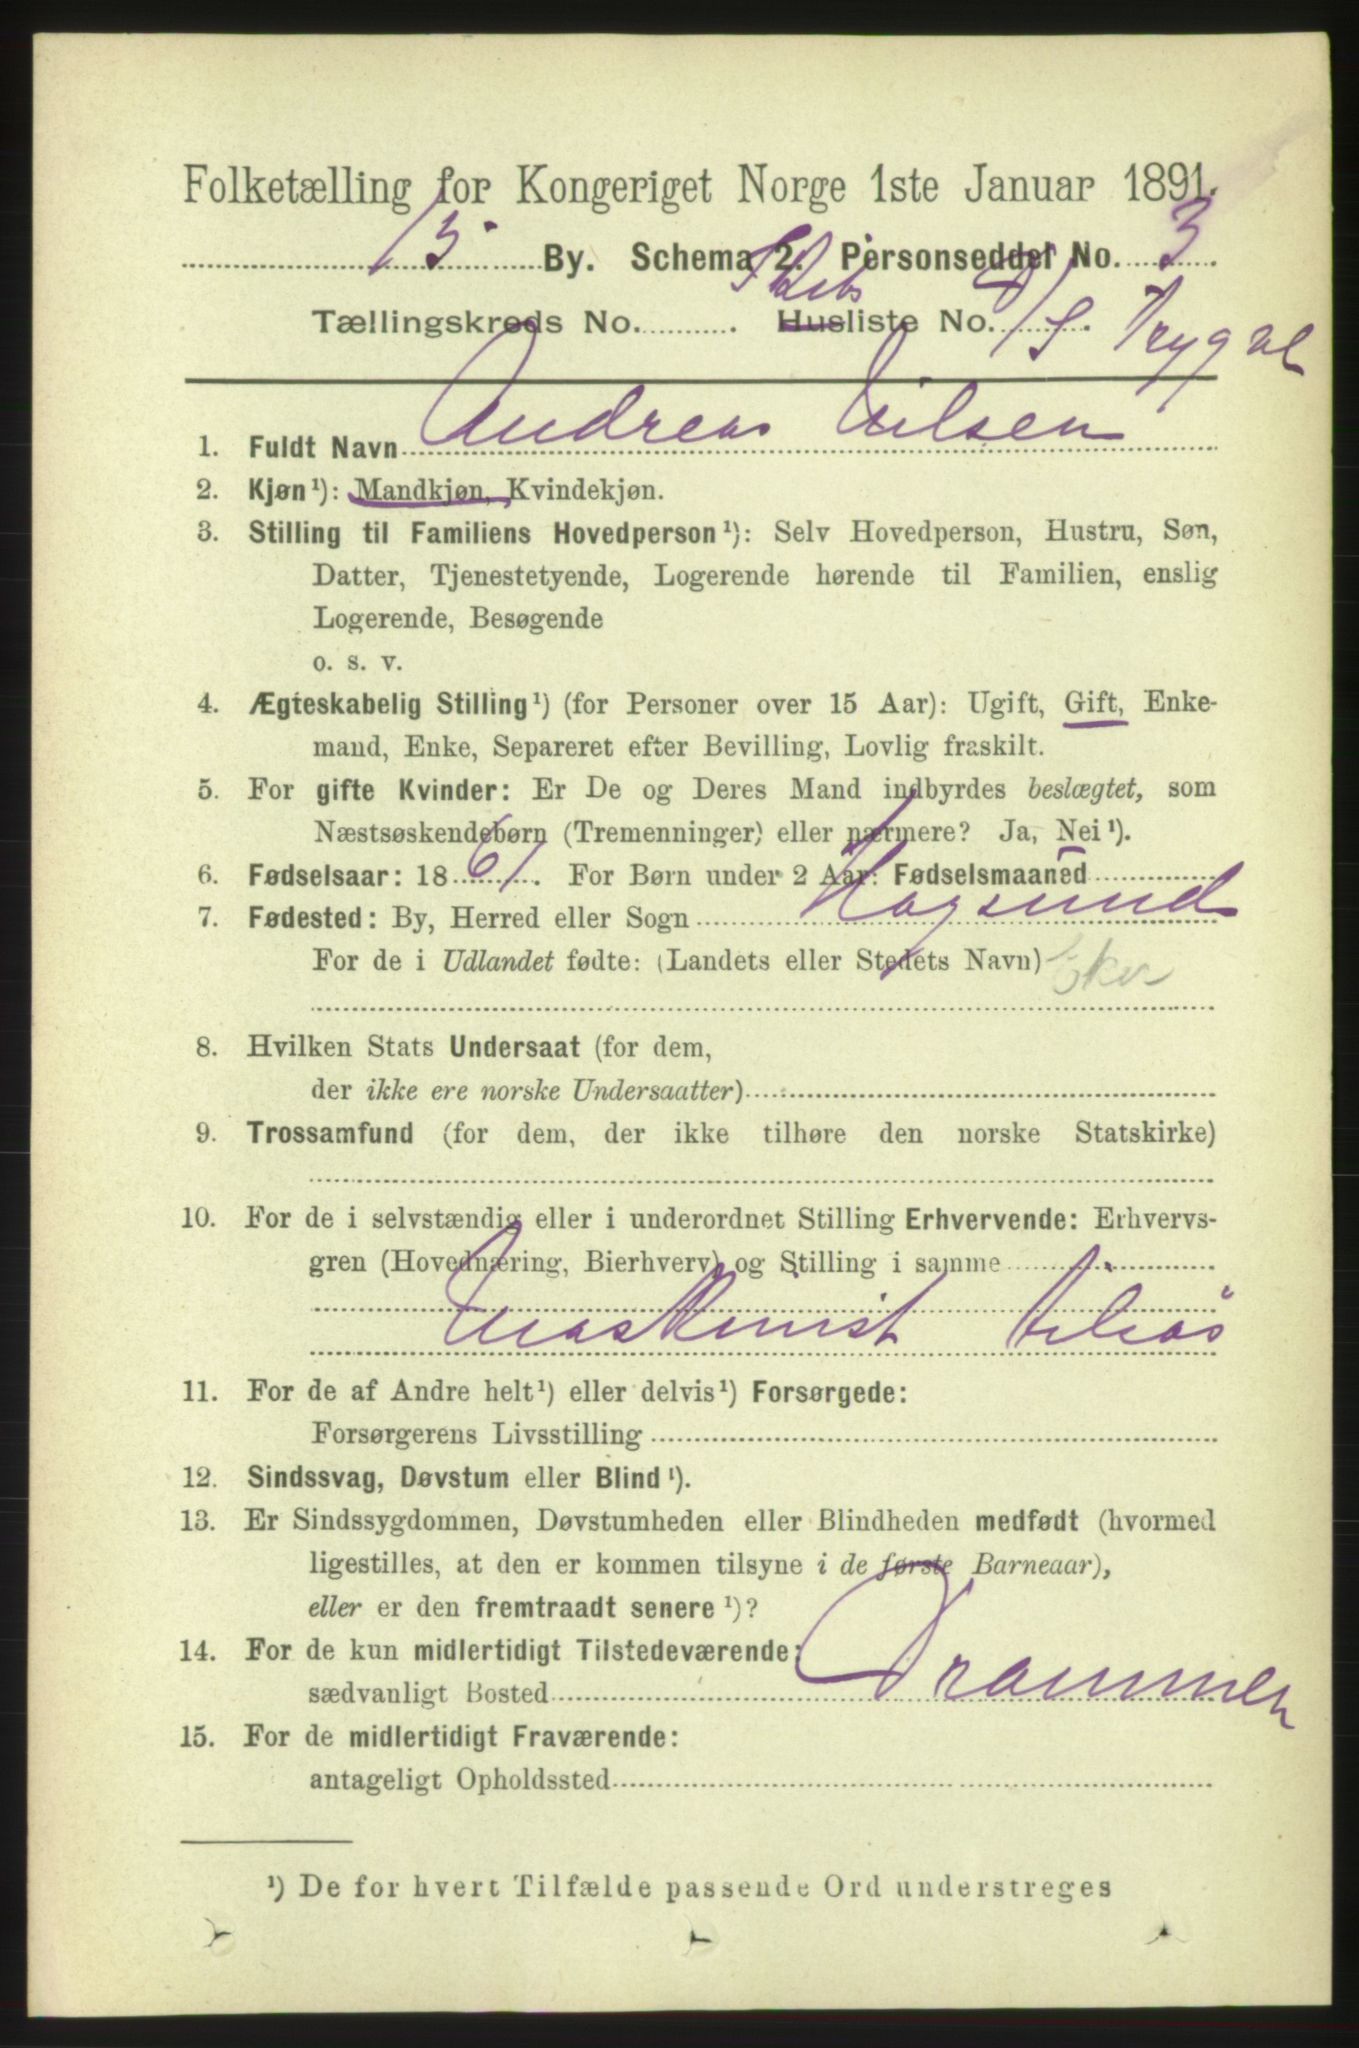 Folketælling for Kongeriget Norge 1ste Januar 1891.
13 By. Schema 2. Personseddel No. 3
Skibs
Tællingskreds No. ........... Husliste No. D/S Trygve
1. Fuldt Navn Andreas Nilsen
2. Kjøn¹): Mandkjøn, Kvindekjøn.
3. Stilling til Familiens Hovedperson¹): Selv Hovedperson, Hustru, Søn,
Datter, Tjenestetyende, Logerende hørende til Familien, enslig
Logerende, Besøgende
o. s. v.
4. Ægteskabelig Stilling¹) (for Personer over 15 Aar): Ugift, Gift, Enke-
mand, Enke, Separeret efter Bevilling, Lovlig fraskilt.
5. For gifte Kvinder: Er De og Deres Mand indbyrdes beslægtet, som
Næstsøskendebørn (Tremenninger) eller nærmere? Ja, Nei¹).
6. Fødselsaar: 1861. For Børn under 2 Aar: Fødselsmaaned
7. Fødested: By, Herred eller Sogn Hogsund
For de i Udlandet fødte: (Landets eller Stedets Navn) Eker
8. Hvilken Stats Undersaat (for dem,
der ikke ere norske Undersaatter)
9. Trossamfund (for dem, der ikke tilhøre den norske Statskirke)
10. For de i selvstændig eller i underordnet Stilling Erhvervende: Erhvervs-
gren (Hovednæring, Bierhverv) og Stilling i samme
Maskinist
11. For de af Andre helt¹) eller delvis¹) Forsørgede:
Forsørgerens Livsstilling
12. Sindssvag, Døvstum eller Blind¹).
13. Er Sindssygdommen, Døvstumheden eller Blindheden medfødt (hvormed
ligestilles, at den er kommen tilsyne i de første Barneaar),
eller er den fremtraadt senere¹)?
14. For de kun midlertidigt Tilstedeværende:
sædvanligt Bosted Drammen
15. For de midlertidigt Fraværende:
antageligt Opholdssted
¹) De for hvert Tilfælde passende Ord understreges